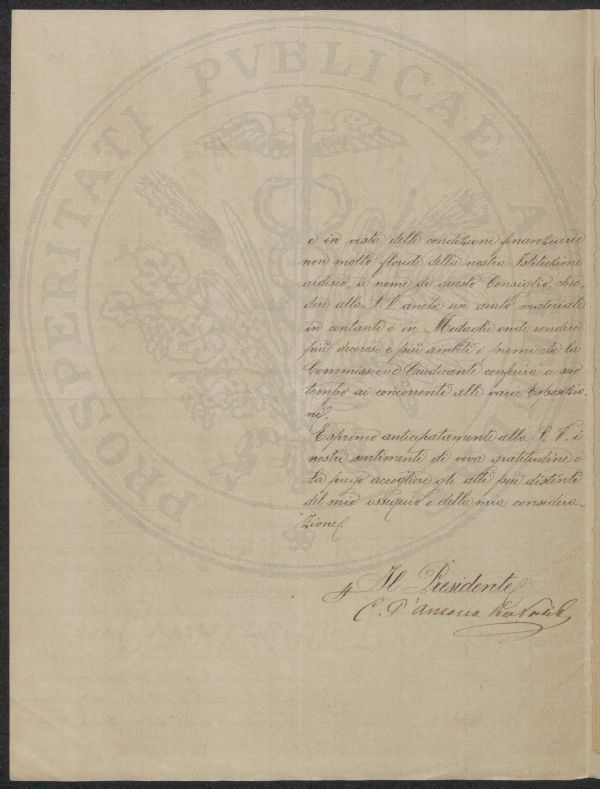 PROSPERITATI PVBLICAE A
e in vista delle condizioni finanziarie
non molto floride della nostra Istituzione
ardisco, a nome di questo Consiglio, chie-
dere alla S. V. anche un aiuto materiale
in contante o in Medaglie onde rendere
più decorosi e più ambiti i premi che la
Commissione Giudicante conferirà a suo
tempo ai concorrenti alle varie Esposizio-
ni.
Esprimo anticipatamente alla S. V. i
nostri sentimenti di viva gratitudine e
La prego accogliere gli atti più distinti
del mio ossequio e della mia considera-
zione.
Il Presidente
C. D'Ancona